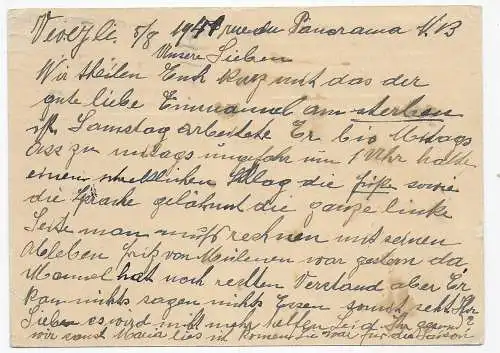 5/8 1941 rue du Panorama N.B
Unsere Lieben
Wir theilen Euch kurz mit das der
gute liebe Emmanuel am sterben
ist. Samstag arbeitete Er bis Mitags
Ass zu mitags ungefähr um 1 Uhr hatte
einen Schlag die füsse sowie
die Sprache gelähmt die ganze linke
Seite man muss rechnen mit seinen
Ableben fritz von Mülenen war gestern da
Mannel hat noch rechten Verstand aber Er
kan nichts sagen nichts Essen sonst
Lieben es wird nicht mehr
wir sand Maria lies kommen Sie war für die Saison